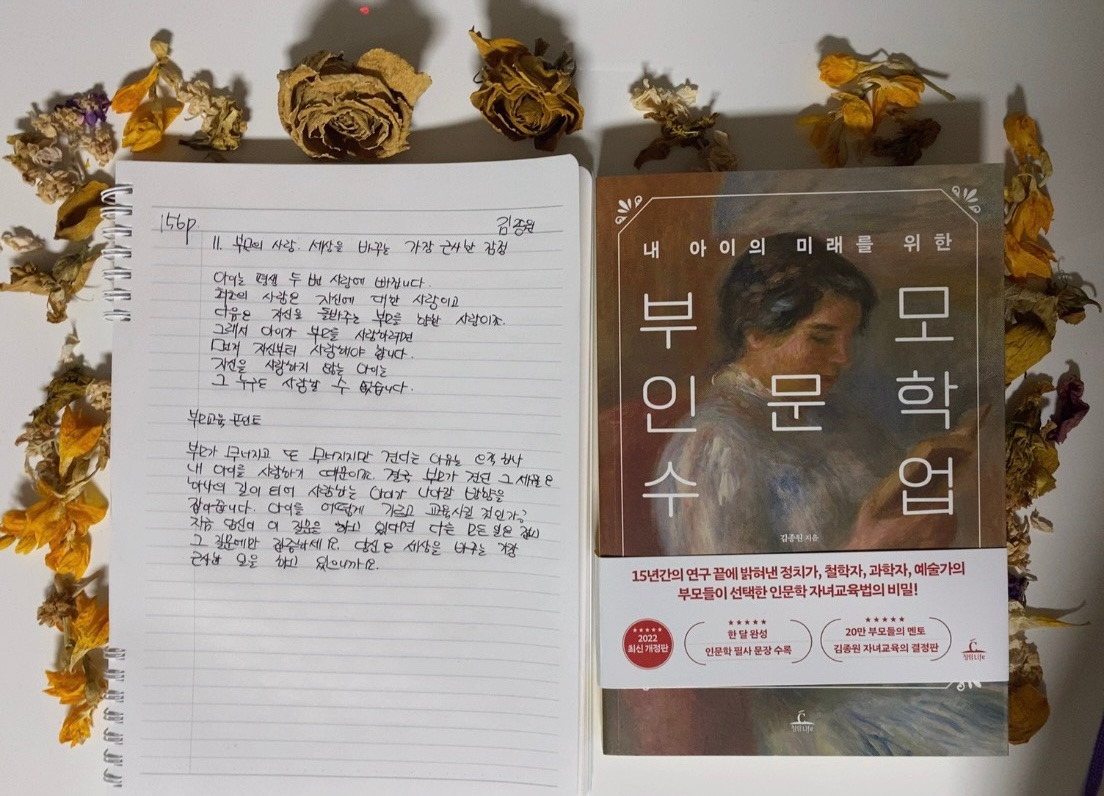 156p.
김종원
11. 부모의 사랑. 세상을 바꾸는 가장 근사한 감정
아이는 평생 두 번 사랑에 빠집니다.
최고의 사랑은 자신에 대한 사랑이고
다음은 자신을 돌봐주는 부모를 향한 사랑이죠.
그래서 아이가 부모를 사랑하려면
먼저 자신부터 사랑해야 합니다.
자신을 사랑하지 않는 아이는
그 누구도 사랑할 수 없습니다.
부모교육 포인트
부모가 무너지고 또 무너지지만 견디는 이유는 오직 하나
내 아이를 사랑하기 때문이죠. 결국 부모가 견딘 그 세월은
하나의 길이 되어 사랑하는 아이가 나아갈 방향을
잡아줍니다. 아이를 어떻게 기르고 교육시킬 것인가?
지금 당신이 이 질문을 하고 있다면 다른 모든 일은 접고
그 질문에만 집중하세요. 당신은 세상을 바꾸는 가장
근사한 일을 하고 있으니까요.
내 아이의 미래를 위한
부모
인문학
수업
김종원 지음
15년간의 연구 끝에 밝혀낸 정치가, 철학자, 과학자, 예술가의
부모들이 선택한 인문학 자녀교육법의 비밀!
2022
최신 개정판
한 달 완성
인문학 필사 문장 수록
20만 부모들의 멘토
김종원 자녀교육의 결정판
청림Life
청림Life